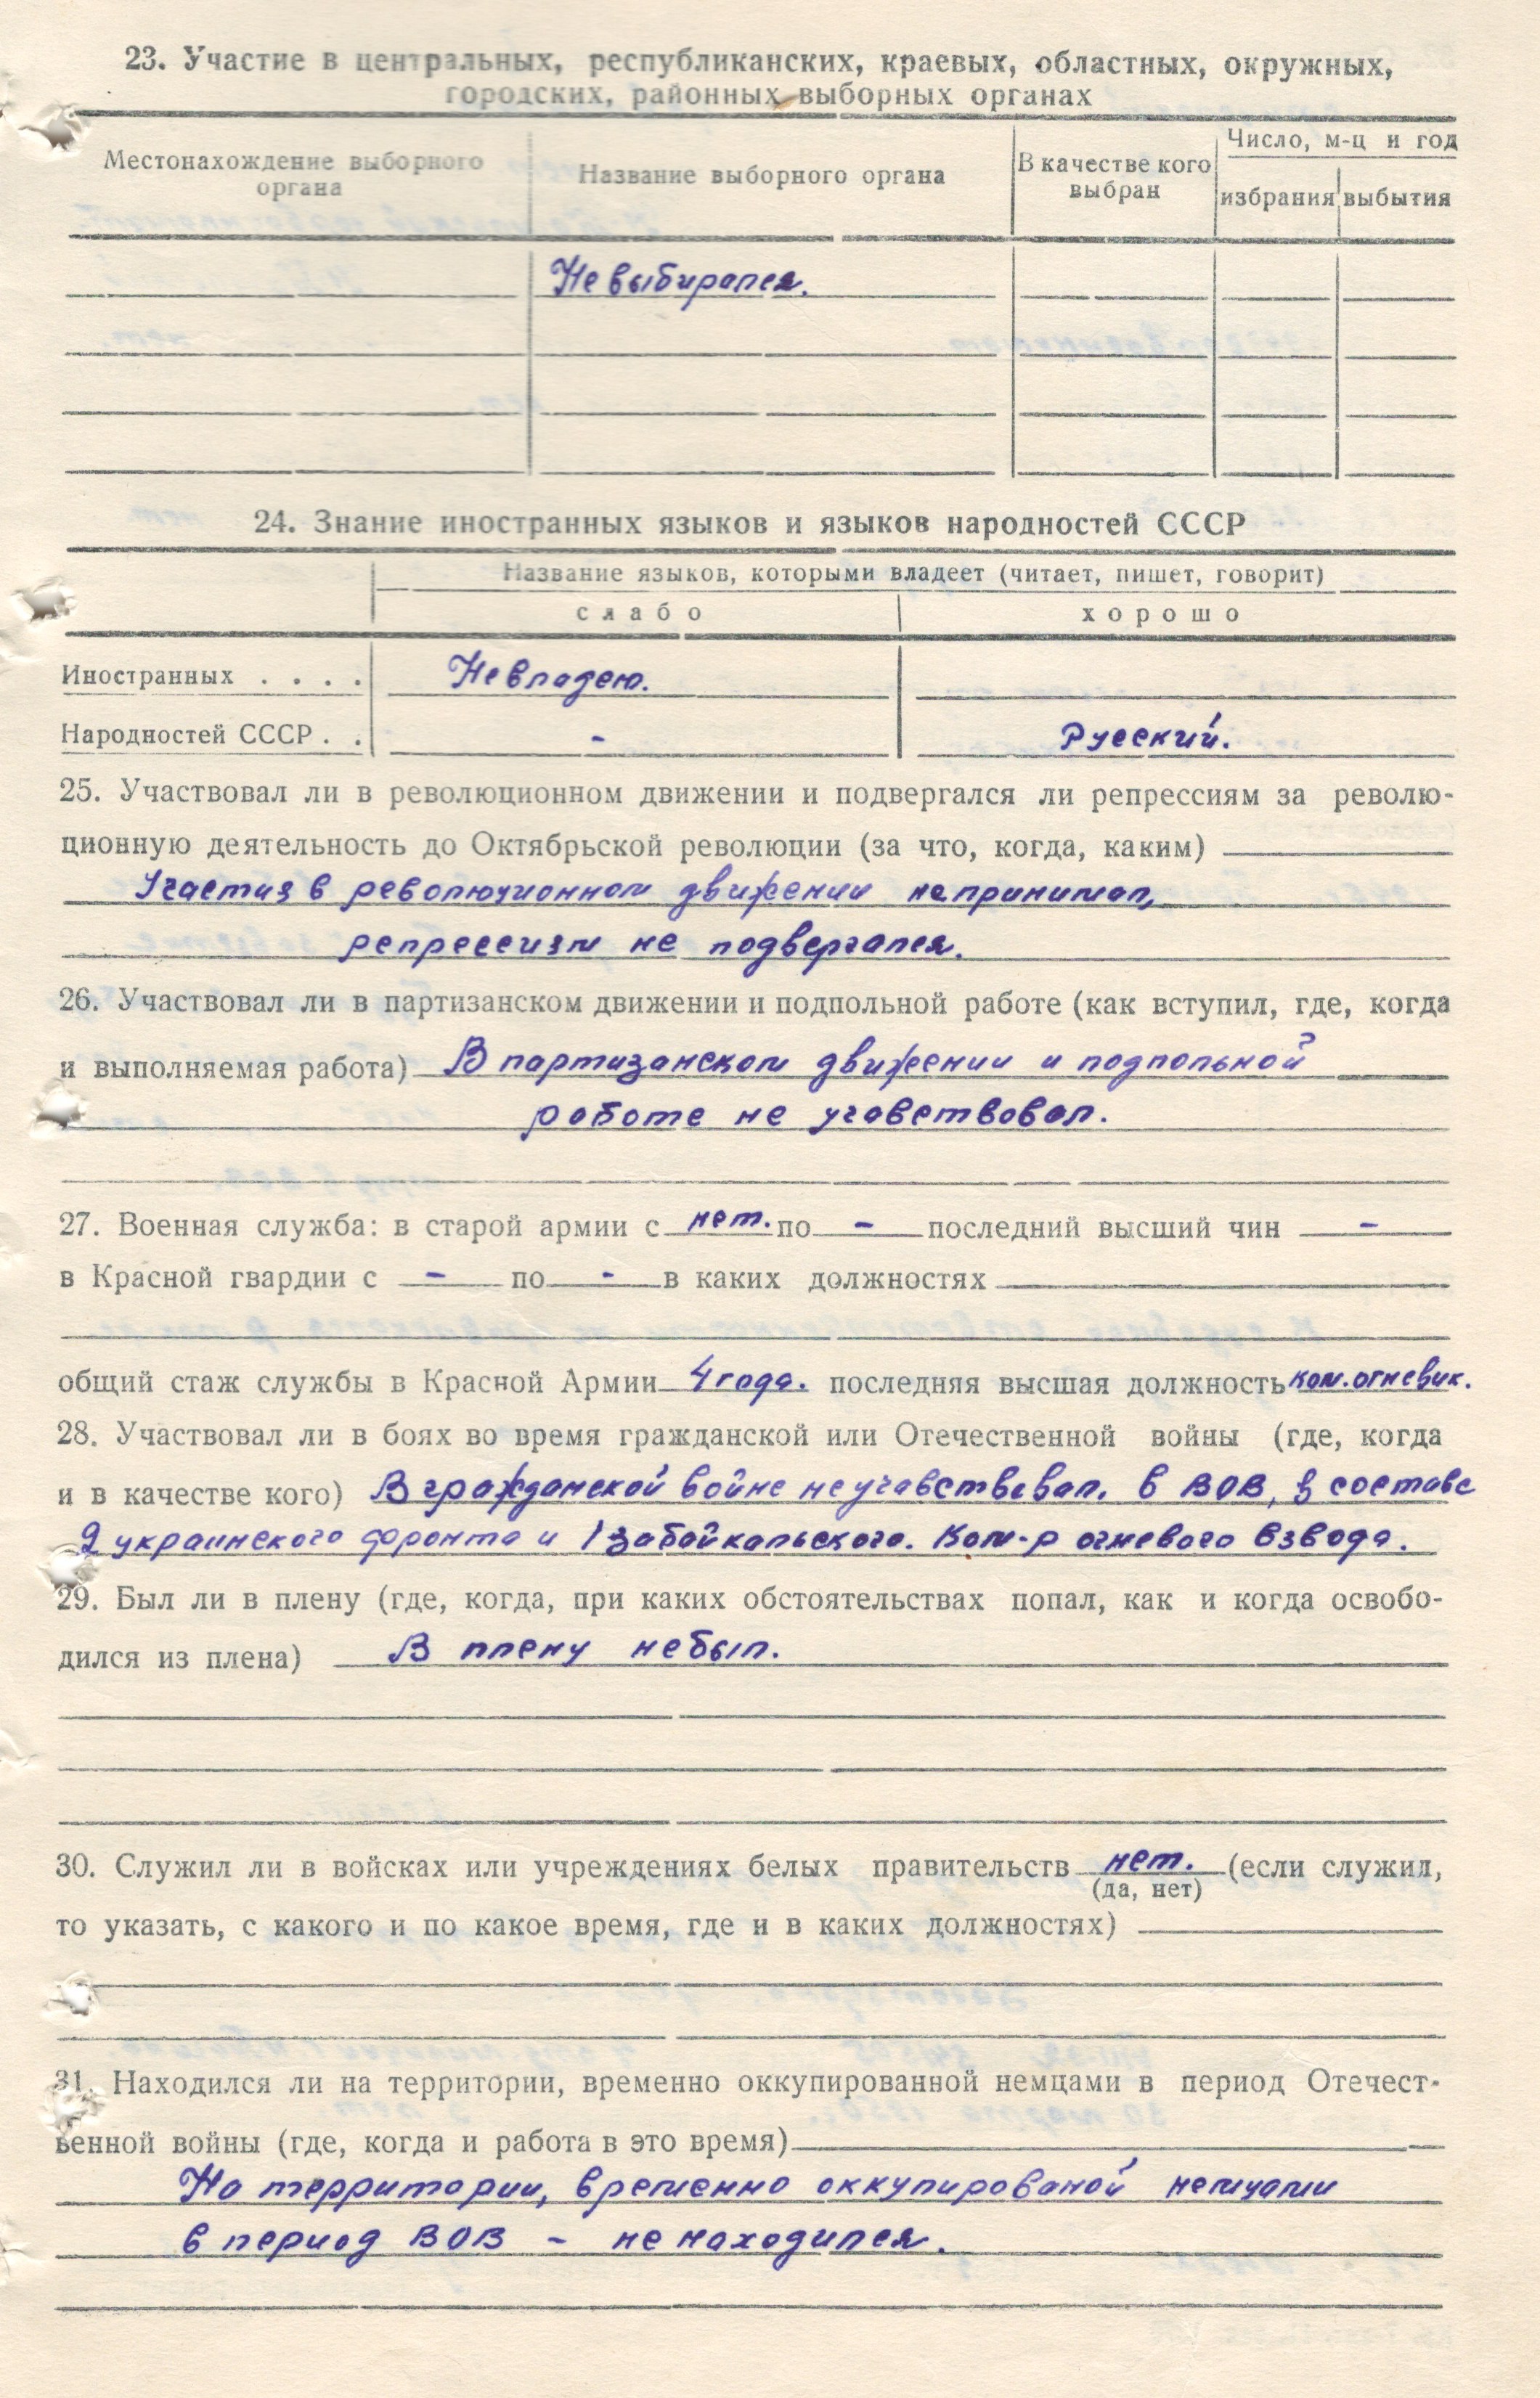 23. Участие в центральных, республиканских, краевых, областных, окружных,
городских, районных выборных органах
Местонахождение выборного органа | Название выборного органа | В качестве кого выбран | Число, м-ц и год
избрания | выбытия
Не выбирался.
24. Знание иностранных языков и языков народностей СССР
Название языков, которыми владеет (читает, пишет, говорит)
слабо | хорошо
Иностранных . . . . Не владею.
Народностей СССР . . - Русский.
25. Участвовал ли в революционном движении и подвергался ли репрессиям за револю-
ционную деятельность до Октябрьской революции (за что, когда, каким)
Участия в революционном движении не принимал,
репрессиям не подвергался.
26. Участвовал ли в партизанском движении и подпольной работе (как вступил, где, когда
и выполняемая работа) В партизанском движении и подпольной
работе не учавствовал.
27. Военная служба: в старой армии с нет. по - последний высший чин -
в Красной гвардии с - по - в каких должностях
общий стаж службы в Красной Армии 4 года. последняя высшая должность ком. огневик.
28. Участвовал ли в боях во время гражданской или Отечественной войны (где, когда
и в качестве кого) В гражданской войне не учавствовал. в ВОВ, в составе
2 украинского фронта и 1 забайкальского. Ком-р огневого взвода.
29. Был ли в плену (где, когда, при каких обстоятельствах попал, как и когда освобо-
дился из плена) В плену не был.
30. Служил ли в войсках или учреждениях белых правительств нет. (если служил,
(да, нет)
то указать, с какого и по какое время, где и в каких должностях)
31. Находился ли на территории, временно оккупированной немцами в период Отечест-
венной войны (где, когда и работа в это время)
На территории, временно оккупированой немцами
в период ВОВ - не находился.